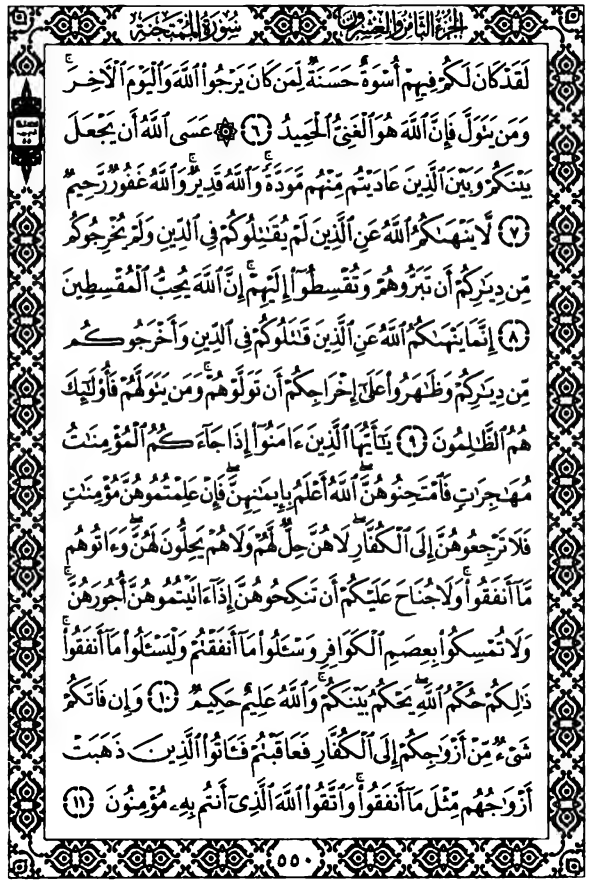 الجزء الثامن والعشرون
سورة الممتحنة
لَقَدْ كَانَ لَكُمْ فِيهِمْ أُسْوَةٌ حَسَنَةٌ لِّمَن كَانَ يَرْجُوا۟ ٱللَّهَ وَٱلْيَوْمَ ٱلْءَاخِرَ ۚ
وَمَن يَتَوَلَّ فَإِنَّ ٱللَّهَ هُوَ ٱلْغَنِىُّ ٱلْحَمِيدُ ﴿٦﴾ ۞ عَسَى ٱللَّهُ أَن يَجْعَلَ
بَيْنَكُمْ وَبَيْنَ ٱلَّذِينَ عَادَيْتُم مِّنْهُم مَّوَدَّةً ۚ وَٱللَّهُ قَدِيرٌ ۚ وَٱللَّهُ غَفُورٌ رَّحِيمٌ
﴿٧﴾ لَّا يَنْهَىٰكُمُ ٱللَّهُ عَنِ ٱلَّذِينَ لَمْ يُقَٰتِلُوكُمْ فِى ٱلدِّينِ وَلَمْ يُخْرِجُوكُم
مِّن دِيَٰرِكُمْ أَن تَبَرُّوهُمْ وَتُقْسِطُوٓا۟ إِلَيْهِمْ ۚ إِنَّ ٱللَّهَ يُحِبُّ ٱلْمُقْسِطِينَ
﴿٨﴾ إِنَّمَا يَنْهَىٰكُمُ ٱللَّهُ عَنِ ٱلَّذِينَ قَٰتَلُوكُمْ فِى ٱلدِّينِ وَأَخْرَجُوكُم
مِّن دِيَٰرِكُمْ وَظَٰهَرُوا۟ عَلَىٰٓ إِخْرَاجِكُمْ أَن تَوَلَّوْهُمْ ۚ وَمَن يَتَوَلَّهُمْ فَأُو۟لَٰٓئِكَ
هُمُ ٱلظَّٰلِمُونَ ﴿٩﴾ يَٰٓأَيُّهَا ٱلَّذِينَ ءَامَنُوٓا۟ إِذَا جَآءَكُمُ ٱلْمُؤْمِنَٰتُ
مُهَٰجِرَٰتٍ فَٱمْتَحِنُوهُنَّ ۖ ٱللَّهُ أَعْلَمُ بِإِيمَٰنِهِنَّ ۖ فَإِنْ عَلِمْتُمُوهُنَّ مُؤْمِنَٰتٍ
فَلَا تَرْجِعُوهُنَّ إِلَى ٱلْكُفَّارِ ۖ لَا هُنَّ حِلٌّ لَّهُمْ وَلَا هُمْ يَحِلُّونَ لَهُنَّ ۖ وَءَاتُوهُم
مَّآ أَنفَقُوا۟ ۚ وَلَا جُنَاحَ عَلَيْكُمْ أَن تَنكِحُوهُنَّ إِذَآ ءَاتَيْتُمُوهُنَّ أُجُورَهُنَّ ۚ
وَلَا تُمْسِكُوا۟ بِعِصَمِ ٱلْكَوَافِرِ وَسْـَٔلُوا۟ مَآ أَنفَقْتُمْ وَلْيَسْـَٔلُوا۟ مَآ أَنفَقُوا۟ ۚ
ذَٰلِكُمْ حُكْمُ ٱللَّهِ ۖ يَحْكُمُ بَيْنَكُمْ ۚ وَٱللَّهُ عَلِيمٌ حَكِيمٌ ﴿١٠﴾ وَإِن فَاتَكُمْ
شَىْءٌ مِّنْ أَزْوَٰجِكُمْ إِلَى ٱلْكُفَّارِ فَعَاقَبْتُمْ فَـَٔاتُوا۟ ٱلَّذِينَ ذَهَبَتْ
أَزْوَٰجُهُم مِّثْلَ مَآ أَنفَقُوا۟ ۚ وَٱتَّقُوا۟ ٱللَّهَ ٱلَّذِىٓ أَنتُم بِهِۦ مُؤْمِنُونَ ﴿١١﴾
٥٥٠